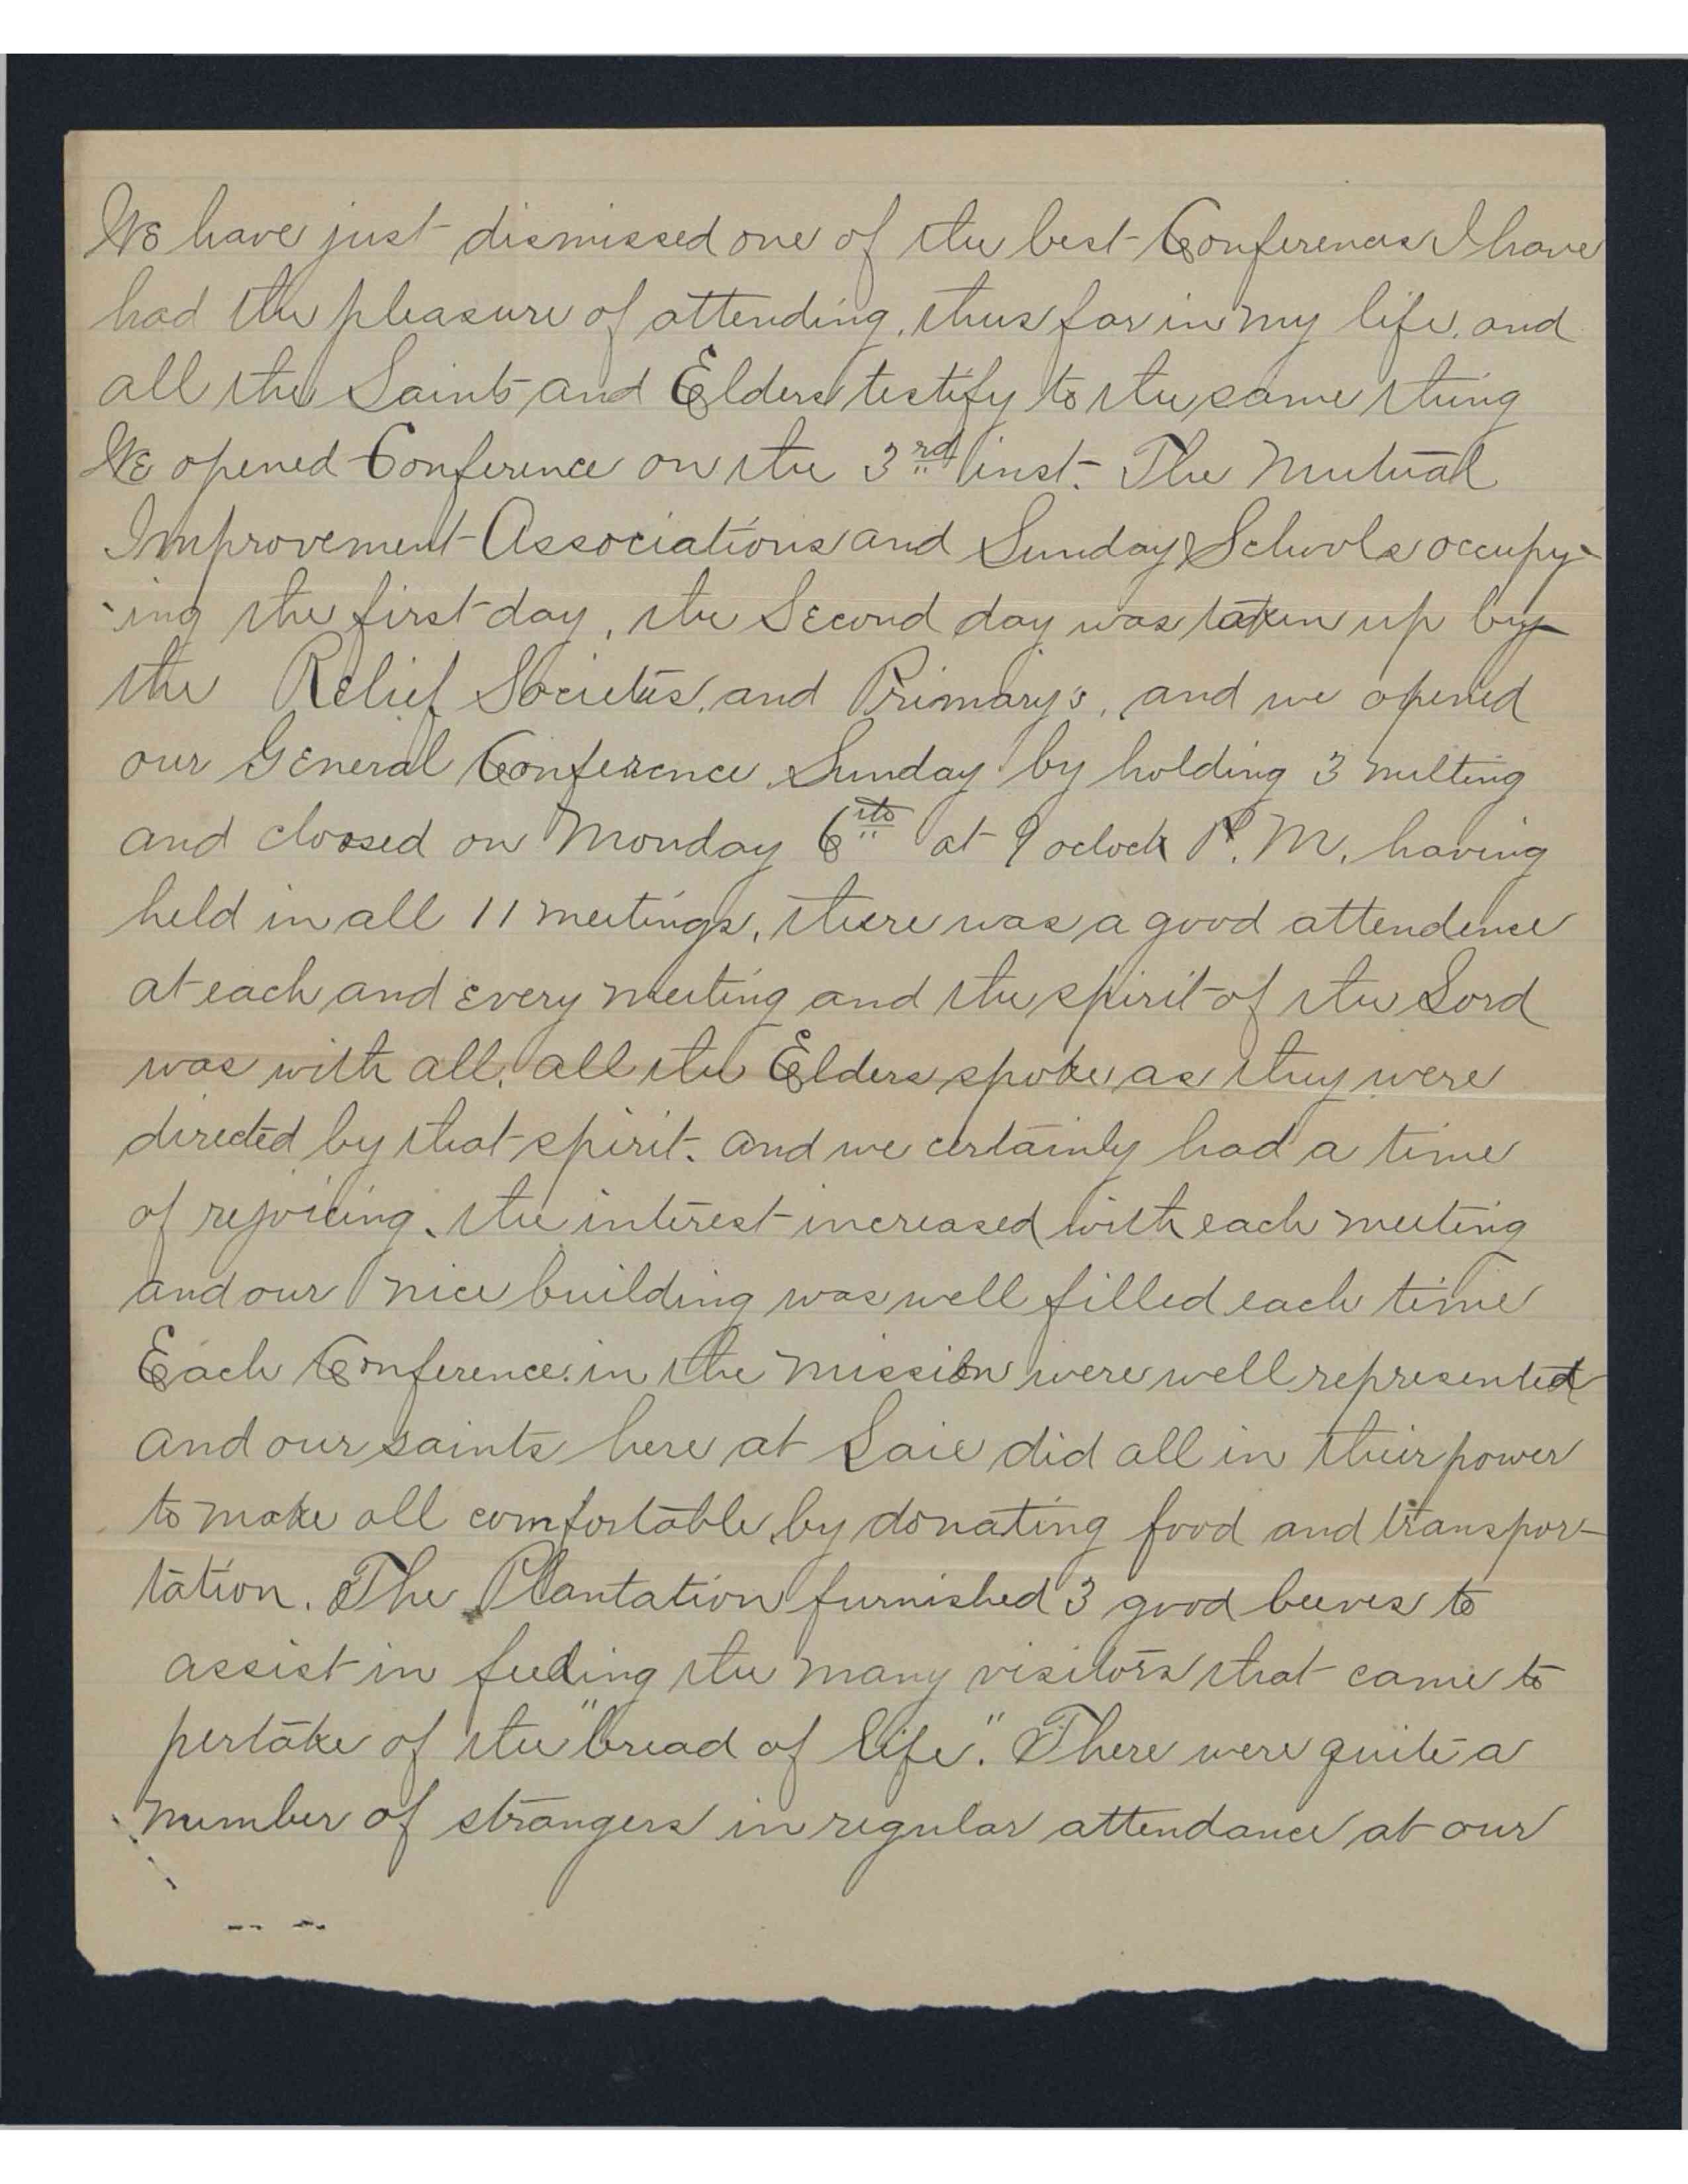 We have just dismissed one of the best Conferences I have
had the pleasure of attending, thus far in my life, and
all the Saints and Elders testify to the same thing
We opened Conference on the 3rd inst. The Mutual
Improvement Associations and Sunday Schools occupy-
-ing the first day, the Second day was taken up by
the Relief Societies, and Primary's, and we opened
our General Conference Sunday by holding 3 meeting
and clossed on Monday 6th at 9 oclock P.M. having
held in all 11 meetings, there was a good attendence
at each and every meeting and the spirit of the Lord
was with all, all the Elders spoke as they were
directed by that spirit. and we certainly had a time
of rejoicing. the interest increased with each meeting
and our nice building was well filled each time
Each Conference in the mission were well represented
and our saints here at Laie did all in their power
to make all comfortable by donating food and transpor-
tation. The Plantation furnished 3 good beeves to
assist in feeding the many visitors that came to
pertake of the "bread of life." There were quite a
number of strangers in regular attendance at our